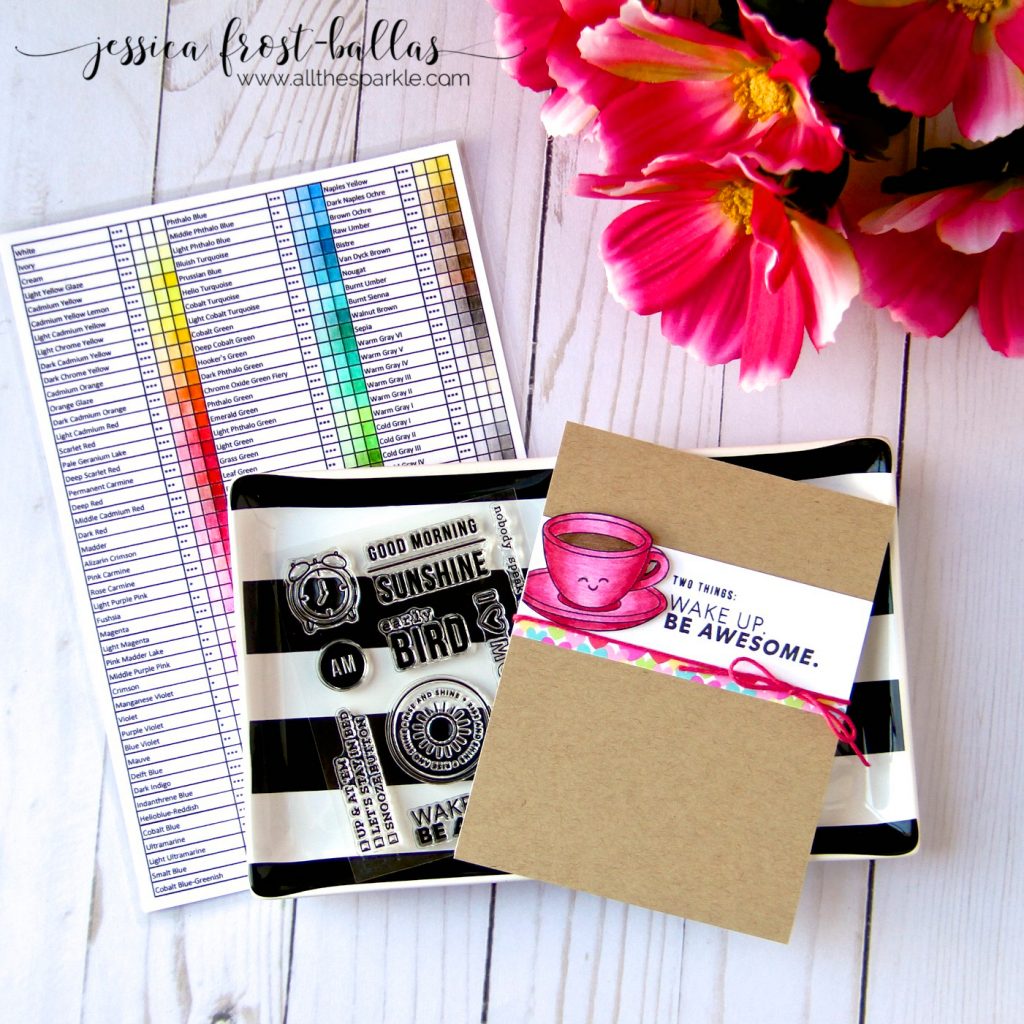 jessica frost-ballas
www.allthesparkle.com
White
Ivory
Cream
Light Yellow Glaze
Cadmium Yellow
Cadmium Yellow Lemon
Light Cadmium Yellow
Light Chrome Yellow
Dark Cadmium Yellow
Dark Chrome Yellow
Cadmium Orange
Orange Glaze
Dark Cadmium Orange
Light Cadmium Red
Scarlet Red
Pale Geranium Lake
Deep Scarlet Red
Permanent Carmine
Deep Red
Middle Cadmium Red
Dark Red
Madder
Alizarin Crimson
Pink Carmine
Rose Carmine
Light Purple Pink
Fushsia
Magenta
Light Magenta
Pink Madder Lake
Middle Purple Pink
Crimson
Manganese Violet
Violet
Purple Violet
Blue Violet
Mauve
Delft Blue
Dark Indigo
Indanthrene Blue
Helioblue-Reddish
Cobalt Blue
Ultramarine
Light Ultramarine
Smalt Blue
Cobalt Blue-Greenish
Phthalo Blue
Middle Phthalo Blue
Light Phthalo Blue
Bluish Turquoise
Prussian Blue
Helio Turquoise
Cobalt Turquoise
Light Cobalt Turquoise
Cobalt Green
Deep Cobalt Green
Hooker's Green
Dark Phthalo Green
Chrome Oxide Green Fiery
Phthalo Green
Emerald Green
Light Phthalo Green
Light Green
Grass Green
Leaf Green
Naples Yellow
Dark Naples Ochre
Brown Ochre
Raw Umber
Bistre
Van Dyck Brown
Nougat
Burnt Umber
Burnt Sienna
Walnut Brown
Sepia
Warm Gray VI
Warm Gray V
Warm Gray IV
Warm Gray III
Warm Gray II
Warm Gray I
Cold Gray I
Cold Gray II
Cold Gray III
Cold Gray IV
GOOD MORNING
SUNSHINE
early
BIRD
AM
nobody
RISE AND SHINE
UP & AT 'EM
LET'S STAY IN BED
SNOOZE BUTTON
WAKE
BE
TWO THINGS:
WAKE UP.
BE AWESOME.